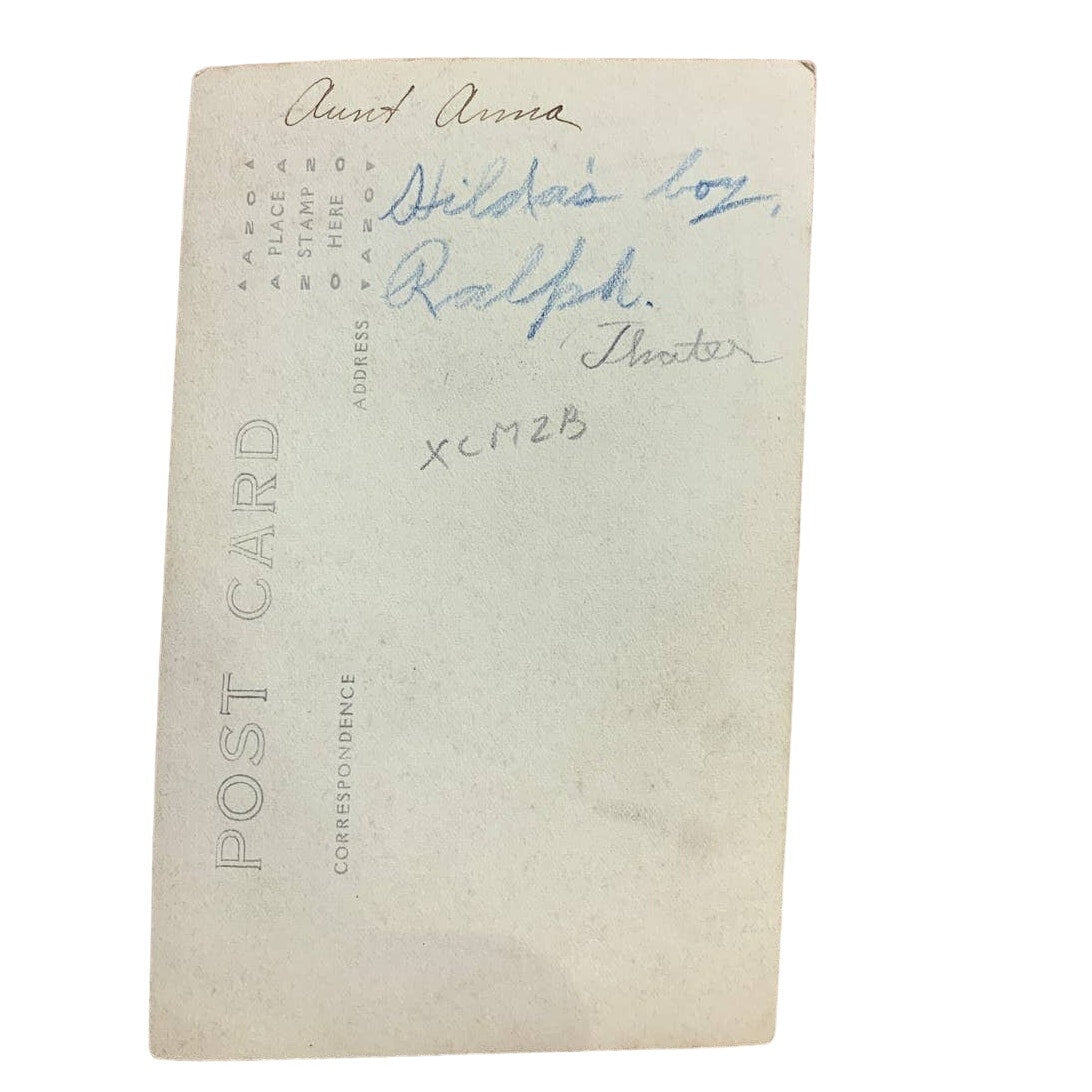 Aunt Anna
Hilda's boy,
Ralph.
Thater
XCM2B
POST CARD
CORRESPONDENCE
ADDRESS
AZO
PLACE
STAMP
HERE
AZO